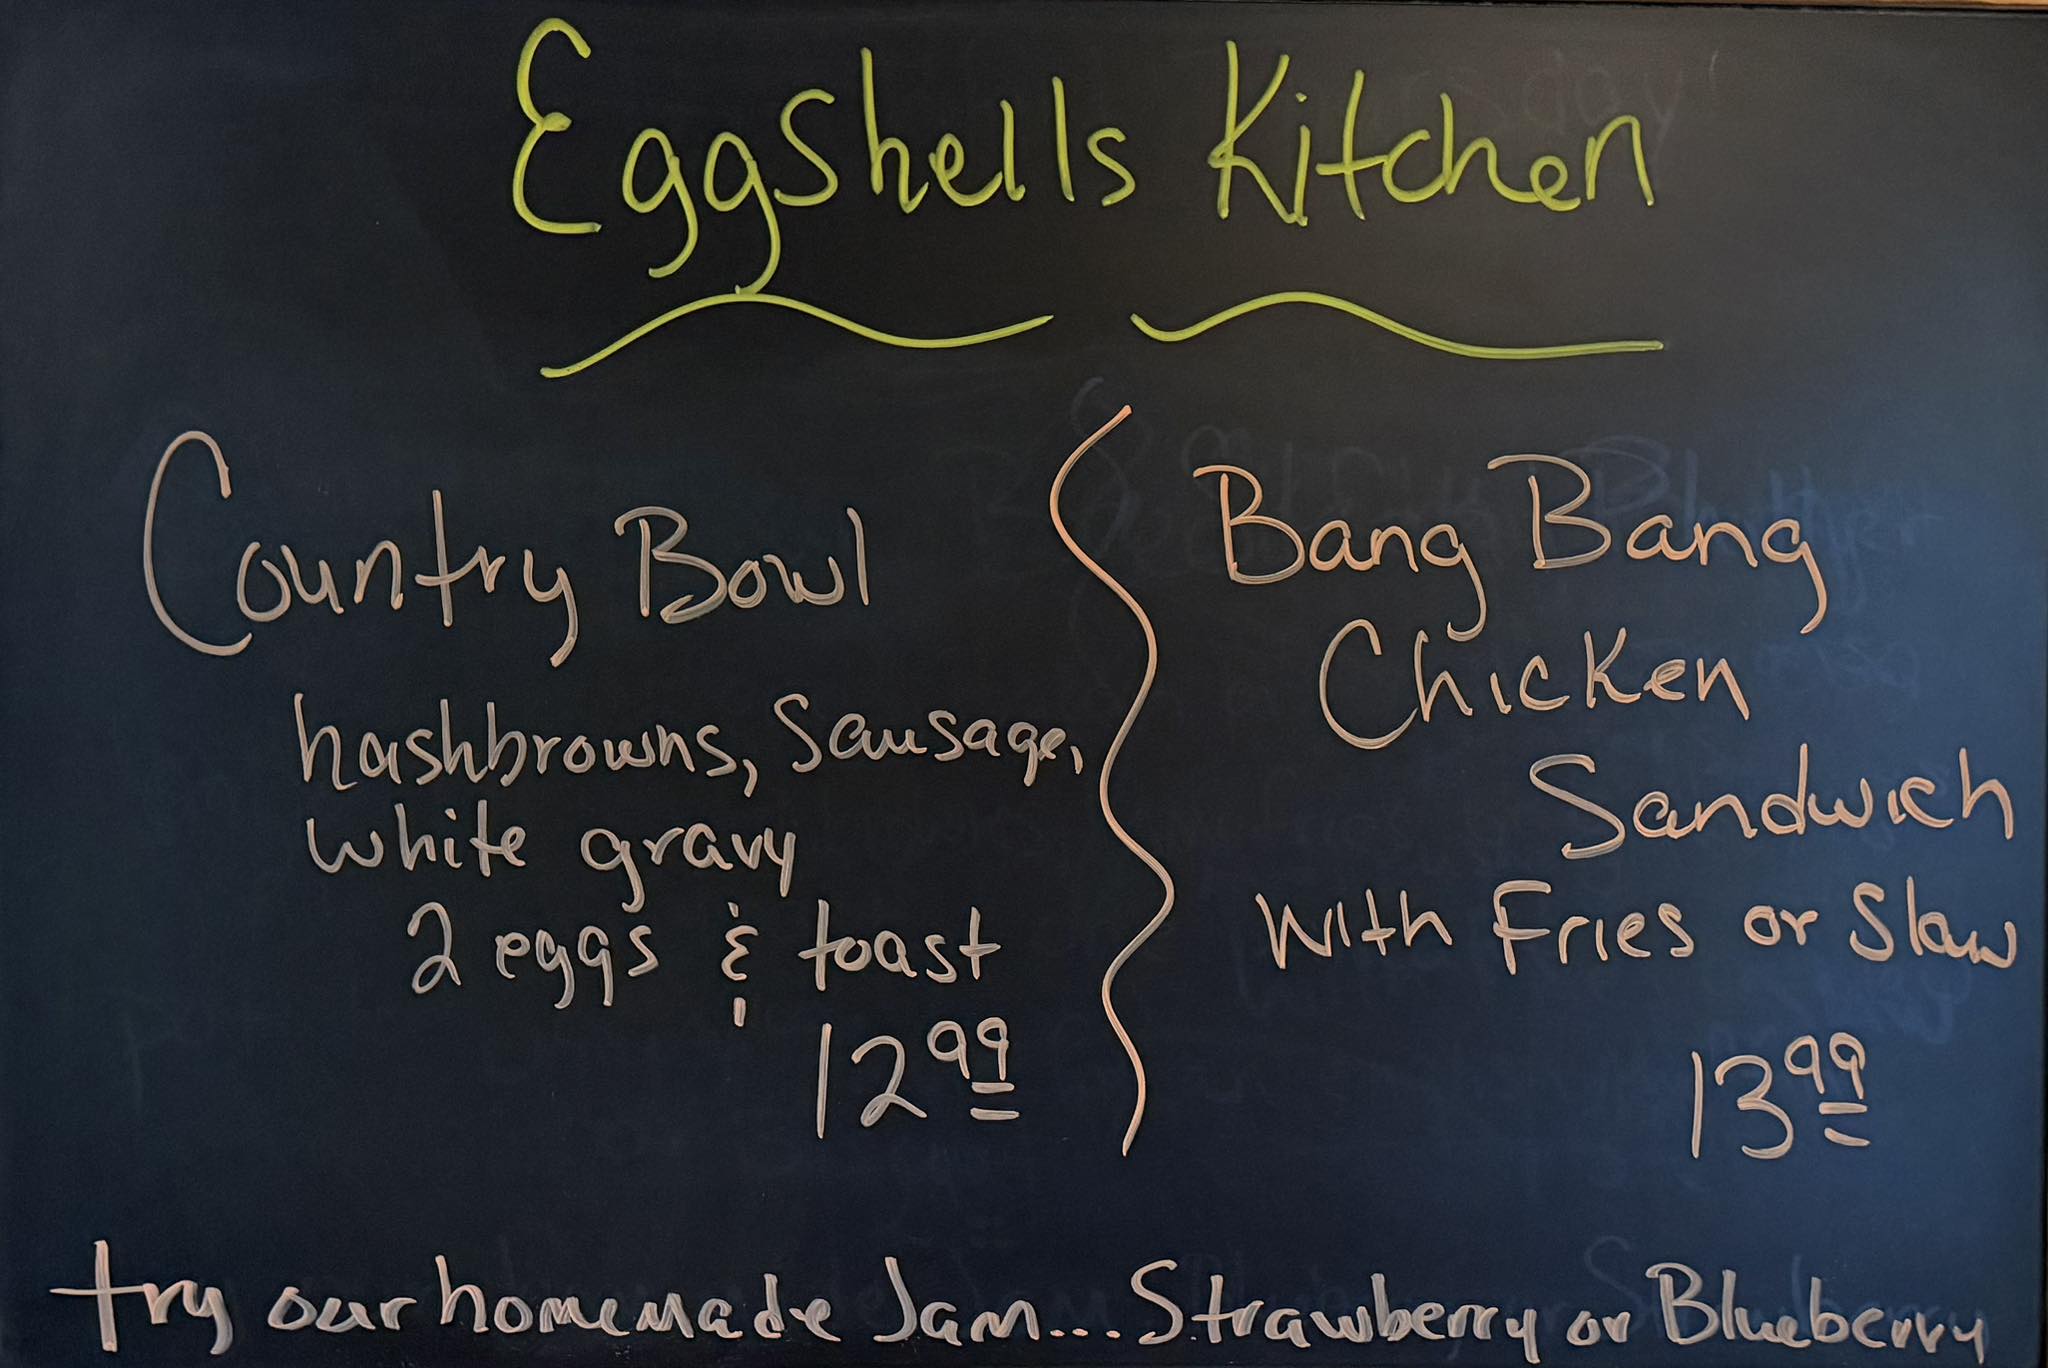 Eggshells Kitchen
Country Bowl
hashbrowns, Sausage,
white gravy
2 eggs & toast
12 99
Bang Bang
Chicken
Sandwich
with Fries or Slaw
13 99
try our homemade Jam... Strawberry or Blueberry